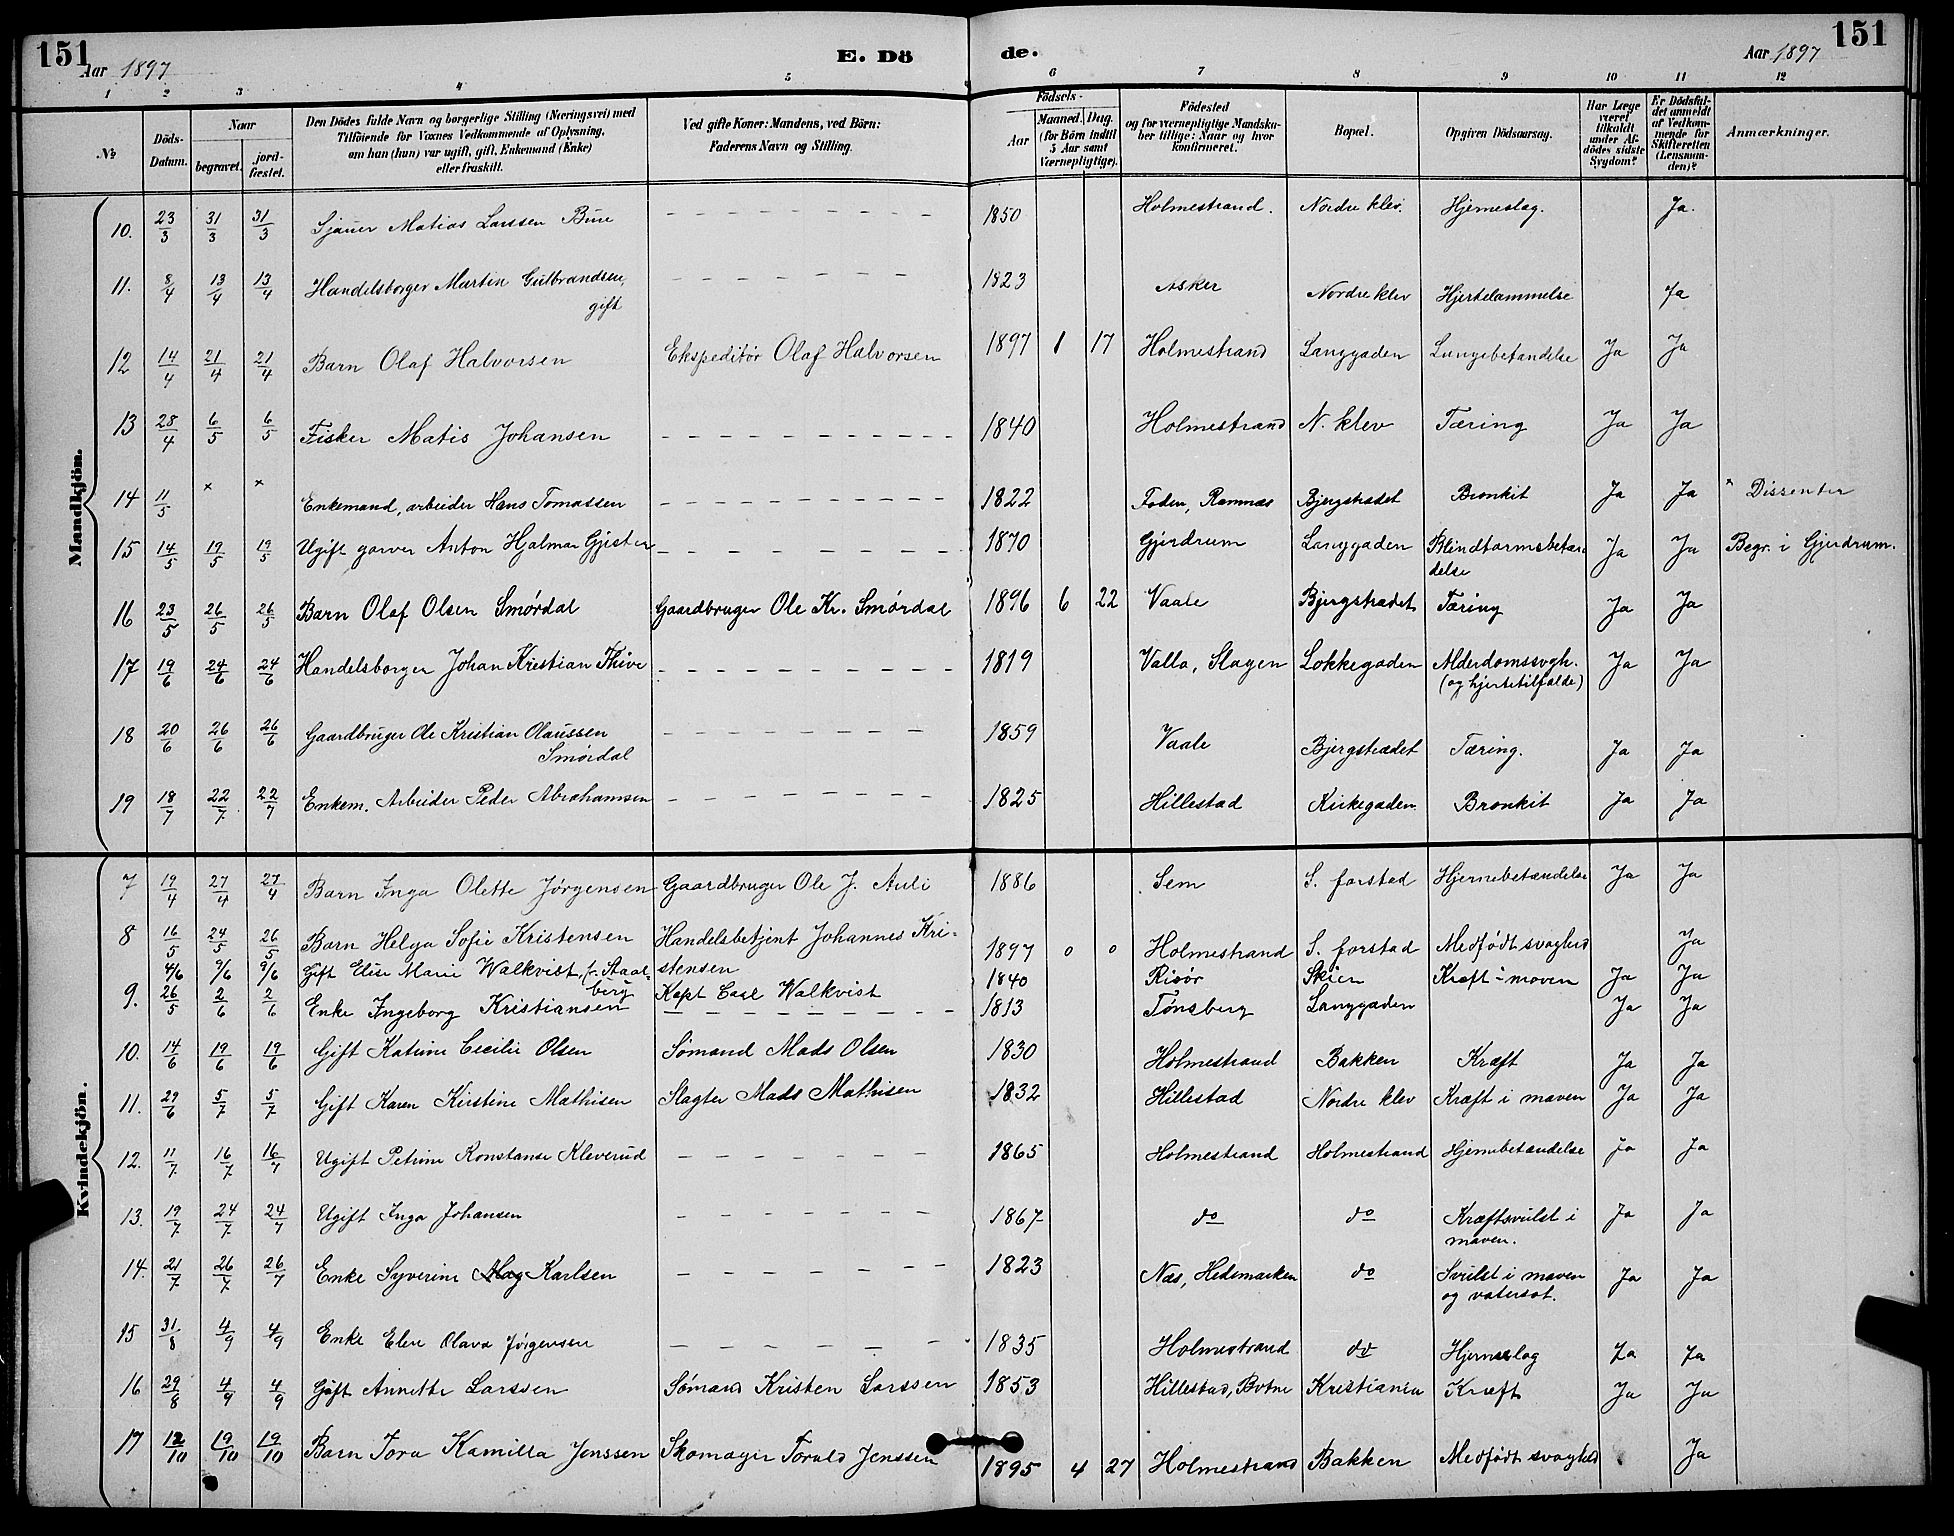 151 Aar 1897 E. Dö de. Aar 1897 151
1 2 3 4 5 6 7 8 9 10 11 12
№ Döds-Datum. Naar begravet. jord-fæstet. Den Dödes fulde Navn og borgerlige Stilling (Næringsvei) med Tilföiende for Voxnes Vedkommende af Oplysning, om han (hun) var ugift, gift, Enkemand (Enke) eller fraskilt. Ved gifte Koner: Mandens, ved Börn: Faderens Navn og Stilling. Födsels- Aar Maaned. Dag. (for Börn indtil 5 Aar samt Værnepligtige). Födested og for værnepligtige Mandska-ber tillige: Naar og hvor konfirmeret. Bopæl. Opgiven Dödsaarsag. Har Læge været tilkaldt under Af-dödes sidste Sygdom? Er Dödsfal-det anmeldt af Vedkom-mende for Skifteretten (Lensman-den)? Anmærkninger.
Mandkjön.
10. 23/3 31/3 31/3 Sjauer Matias Larssen Bue 1850 Holmestrand. Nordre klev. Hjerneslag. Ja.
11. 8/4 13/4 13/4 Handelsborger Martin Gulbrandsen, 1823 Asker Nordre klev Hjertelammelse Ja
gift
12 14/4 21/4 21/4 Barn Olaf Halvorsen Ekspeditør Olaf Halvorsen 1897 1 17 Holmestrand Langgaden Lungebetændelse Ja Ja
13 28/4 6/5 6/5 Fisker Matis Johansen 1840 Holmestrand N. klev Tæring Ja Ja
14 11/5 × × Enkemand, arbeider Hans Tomassen 1822 Foden, Ramnæs Bjergstrædet Bronkit Ja Ja × Dissenter
15 14/5 19/5 19/5 Ugift garver Anton Hjalmar Gjester 1870 Gjerdrum Langgaden Blindtarmsbetæn- Ja Ja Begr. i Gjerdrum.
delse
16 23/5 26/5 26/5 Barn Olaf Olsen Smørdal Gaardbruger Ole Kr. Smørdal 1896 6 22 Vaale Bjergstrædet Tæring Ja Ja
17 19/6 24/6 24/6 Handelsborger Johan Kristian Thive 1819 Valla, Slagen Løkkegaden Alderdomssvagh. Ja Ja
(og hjertetilfælde)
18 20/6 26/6 26/6 Gaardbruger Ole Kristian Olaussen 1859 Vaale Bjergstrædet Tæring. Ja Ja
Smørdal
19 18/7 22/7 22/7 Enkem. Arbeider Peder Abrahamsen 1825 Hillestad Kirkegaden Bronkit Ja Ja
Kvindekjön.
7 19/4 27/4 27/4 Barn Inga Olette Jørgensen Gaardbruger Ole J. Auli 1886 Sem S. forstad Hjernebetændelse Ja Ja
8 16/5 24/5 26/5 Barn Helga Sofie Kristensen Handelsbetjent Johannes Kri- 1897 0 0 Holmestrand S. forstad Medfødt svaghed Ja
stensen
4/6 9/6 9/6 Gift Elise Marie Walkvist, f. Staal- Kapt Carl Walkvist 1840 Risør Skien Kræft i maven Ja Ja
berg
9. 26/5 2/6 2/6 Enke Ingeborg Kristiansen 1813 Tønsberg Langgaden Ja Ja
10. 14/6 19/6 19/6 Gift Katrine Cecilie Olsen Sømand Mads Olsen 1830 Holmestrand Bakken Kræft Ja Ja
11. 29/6 5/7 5/7 Gift Karen Kirstine Mathisen Slagter Mads Mathisen 1832 Hillestad Nordre klev Kræft i maven Ja Ja
12. 11/7 16/7 16/7 Ugift Petrine Konstanse Kleverud 1865 Holmestrand Holmestrand Hjernebetændelse Ja Ja
13. 19/7 24/7 24/7 Ugift Inga Johansen 1867 do do Kræftsvulst i Ja Ja
maven.
14. 21/7 26/7 26/7 Enke Syverine Karlsen 1823 Næs, Hedemarken do Svulst i maven Ja Ja
og vatersot.
15 31/8 4/9 4/9 Enke Elen Olava Jørgensen 1835 Holmestrand do Hjerneslag Ja Ja
16 29/8 4/9 4/9 Gift Annette Larssen Sømand Kristen Larssen 1853 Hillestad, Botne Kristiania Kræft Ja Ja
17 12/10 19/10 19/10 Barn Tora Kamilla Jenssen Skomager Torvald Jenssen 1895 4 27 Holmestrand Bakken Medfødt svaghed Ja